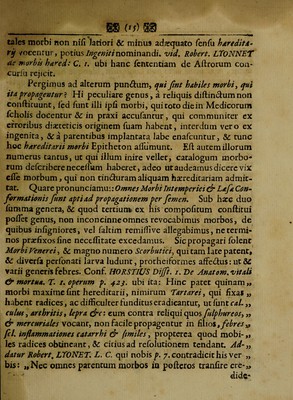 (15)
tales morbi non nisi latiori & minus adæquato sensu haredita-
rij vocentur, potius Ingeniti nominandi. vid. Robert. LYONNET
de morbis hared: C. 1. ubi hanc sententiam de Astrorum con-
curiu rejicit.
Pergimus ad alterum punctum, qui sint habiles morbi, qui
ita propagentur? Hi peculiare genus, á reliquis distinctum non
constituunt, sed sunt illi ipsi morbi, qui toto die in Medicorum
scholis docentur & in praxi accusantur, qui communiter ex
erroribus diæteticis originem suam habent, interdum vero ex
ingenita, & à parentibus implantata labe enascuntur, & tunc
hoc hareditarii morbi Epitheton assumunt. Est autem illorum
numerus tantus, ut qui illum inire vellet, catalogum morbo-
rum describere necessum haberet, adeo ut audeamus dicere vix
esse morbum, qui non tincturam aliquam hæreditariam admit-
tat. Quare pronunciamu::Omnes Morbi Intemperiei & Lasa Con-
formationis sunt apti ad propagationem per semen. Sub hæc duo
summa genera, & quod tertium ex his compositum constitui
posset genus, non inconcinne omnes revocabimus morbos, de
quibus insigniores, vel saltim remissive allegabimus, ne termi-
nos præfixos sine necessitate excedamus. Sic propagari solent
Morbi Venerei, & magno numero Scorbutici, qui tam late patent,
& diversa personati larva ludunt, protheiformes affectus: ut &
varii generis febres. Conf. HORSTIUS Diss. 1. De Anatom. vitali
& mortua. T. 1. operum p. 423. ubi ita: Hinc patet quinam „
morbi maxime sint hereditarii, nimirum Tartarei, qui fixas „
habent radices, ac difficulter funditus eradicantur, ut sunt cal, „
culus, arthritis, lepra &c: eum contra reliqui quos sulphureos, „
& mercuriales vocant, non facile propagentur in filios, febres „
scl. inflammationes catarrhi & similes, propterea quod mobi- „
les radices obtineant, & citius ad resolutionem tendant. Ad-
datur Robert, LYONET. L. C. qui nobis p. 7. contradicit his ver „
bis: „ Nec omnes parentum morbos in posteros transire cre- „
dide-